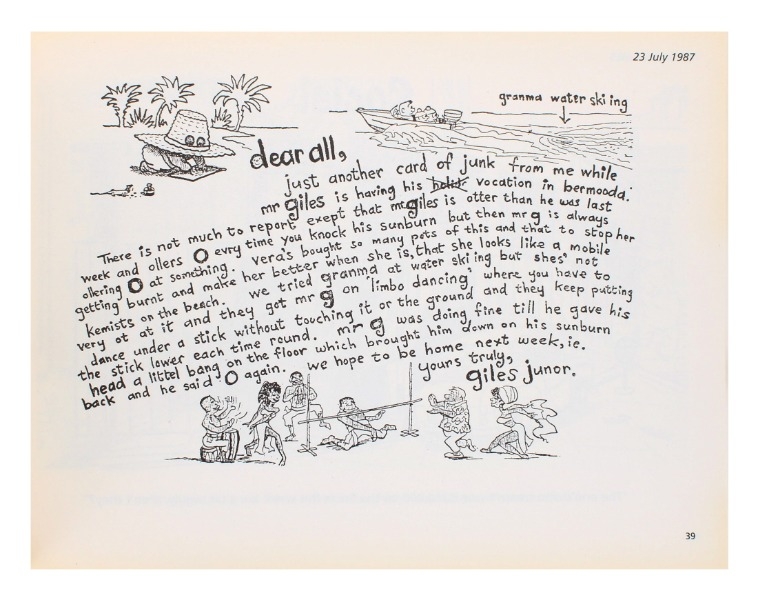 23 July 1987
granma water ski ing
dear all,
just another card of junk from me while
mr giles is having his vocation in bermooda.
There is not much to report exept that mr giles is otter than he was last
week and ollers O evry time you knock his sunburn but then mr g is always
ollering O at something. vera's bought so many pots of this and that to stop her
getting burnt and make her better when she is, that she looks like a mobile
kemists on the beach. we tried granma at water ski ing but shes' not
very ot at it and they got mr g on 'limbo dancing' where you have to
dance under a stick without touching it or the ground and they keep putting
the stick lower each time round. mr g was doing fine till he gave his
head a littel bang on the floor which brought him down on his sunburn
back and he said O again. we hope to be home next week, ie.
yours truly,
giles junor.
39